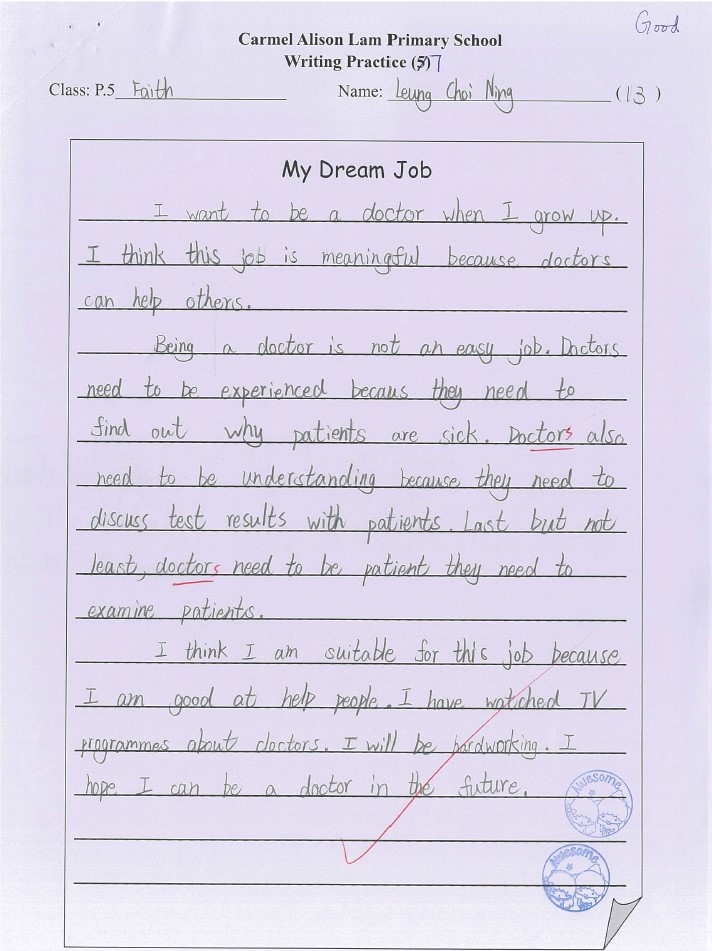 Good
Carmel Alison Lam Primary School
Writing Practice (5)7
Class: P.5 Faith Name: Leung Choi Ning (13)
My Dream Job
I want to be a doctor when I grow up.
I think this job is meaningful because doctors
can help others.
Being a doctor is not an easy job. Doctors
need to be experienced becaus they need to
find out why patients are sick. Doctors also
need to be understanding because they need to
discuss test results with patients. Last but not
least, doctors need to be patient they need to
examine patients.
I think I am suitable for this job because
I am good at help people. I have watched TV
programmes about doctors. I will be hardworking. I
hope I can be a doctor in the future.
Awesome
Awesome